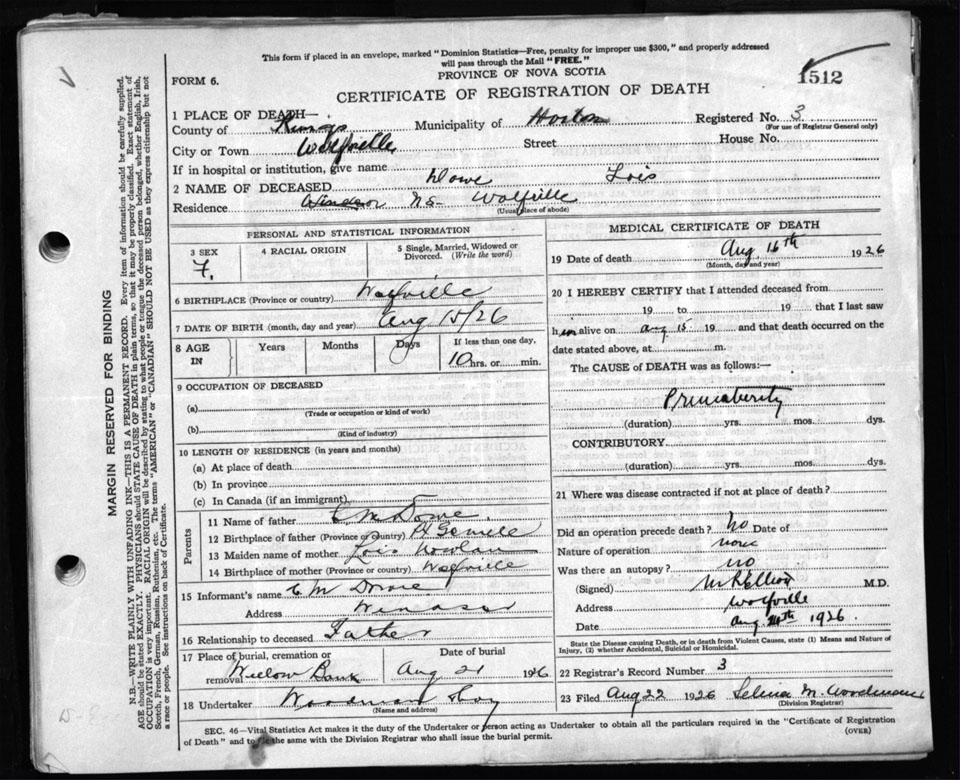 This form if placed in an envelope, marked "Dominion Statistics—Free, penalty for improper use $300," and properly addressed
will pass through the Mail "FREE."
1512
PROVINCE OF NOVA SCOTIA
FORM 6.
CERTIFICATE OF REGISTRATION OF DEATH
1 PLACE OF DEATH—
County of Kings Municipality of Horton Registered No. 3
(For use of Registrar General only)
City or Town Wolfville Street House No.
If in hospital or institution, give name
2 NAME OF DECEASED Dowe Lois
Residence Windsor NS- Wolfville
(Usual place of abode)
PERSONAL AND STATISTICAL INFORMATION
3 SEX F.
4 RACIAL ORIGIN
5 Single, Married, Widowed or
Divorced. (Write the word)
6 BIRTHPLACE (Province or country) Wolfville
7 DATE OF BIRTH (month, day and year) Aug 15/26
8 AGE IN
Years Months Days
If less than one day,
10 hrs. or min.
9 OCCUPATION OF DECEASED
(a)
(Trade or occupation or kind of work)
(b)
(Kind of industry)
10 LENGTH OF RESIDENCE (in years and months)
(a) At place of death
(b) In province
(c) In Canada (if an immigrant)
Parents
11 Name of father C M Dowe
12 Birthplace of father (Province or country)
13 Maiden name of mother Lois
14 Birthplace of mother (Province or country) Wolfville
15 Informant's name C M Dowe
Address Windsor
16 Relationship to deceased Father
17 Place of burial, cremation or Date of burial
removal Willow Bank Aug 21 1926
18 Undertaker Woodman
(Name and address)
MEDICAL CERTIFICATE OF DEATH
19 Date of death Aug. 16th 1926
(Month, day and year)
20 I HEREBY CERTIFY that I attended deceased from
19 to 19 that I last saw
h alive on Aug 15 19 and that death occurred on the
date stated above, at m.
The CAUSE of DEATH was as follows:—
Prematurity
(duration) yrs. mos. dys.
CONTRIBUTORY
(duration) yrs. mos. dys.
21 Where was disease contracted if not at place of death?
Did an operation precede death? No Date of
Nature of operation none
Was there an autopsy? no
(Signed) M R Elliott M.D.
Address Wolfville
Date 1926.
State the Disease causing Death, or in death from Violent Causes, state (1) Means and Nature of
Injury, (2) whether Accidental, Suicidal or Homicidal.
22 Registrar's Record Number 3
23 Filed Aug 22 1926 Selina M. Woodman
(Division Registrar)
SEC. 46—Vital Statistics Act makes it the duty of the Undertaker or person acting as Undertaker to obtain all the particulars required in the "Certificate of Registration
of Death" and to file the same with the Division Registrar who shall issue the burial permit.
(OVER)
MARGIN RESERVED FOR BINDING
N.B.—WRITE PLAINLY WITH UNFADING INK—THIS IS A PERMANENT RECORD. Every item of information should be carefully supplied.
AGE should be stated EXACTLY. PHYSICIANS should STATE CAUSE OF DEATH in plain terms, so that it may be properly classified. Exact statement of
OCCUPATION is very important. RACIAL ORIGIN will be described by stating to what people or tongue the deceased person belonged, whether English, Irish,
Scotch, French, German, Russian, Ruthenian, etc. The terms "AMERICAN" or "CANADIAN" SHOULD NOT BE USED as they express citizenship but not
a race or people. See instructions on back of Certificate.